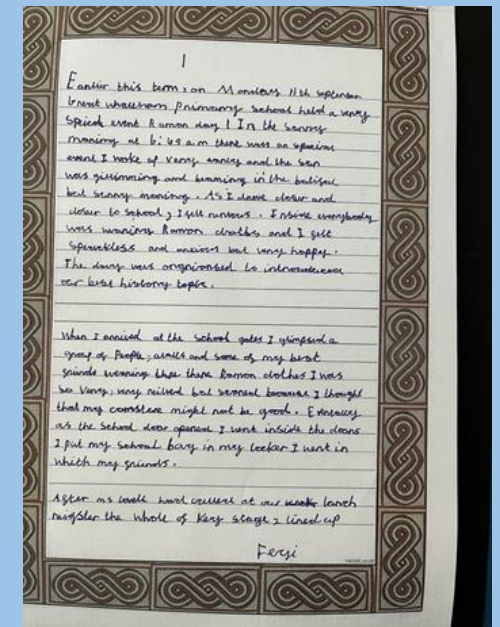 1
Earlier this term, on Monday 11th september
Great whaltham Primary School held a very
Speical event Roman day! In the sunny
morning at 6:45 a.m there was an special
event I woke up very early and the sun
was glimmering and beaming in the
but sunny morning. As I drove closer and
closer to school, I felt nervous. Inside everybody
was wearing Roman cloths and I felt
Speechless and anxious but very happy.
The day was to
our last history topic.
When I arrived at the school gates I glimpsed a
group of People, and some of my best
friends wearing there Roman clothes I was
so very, very but scared because I thought
that my might not be good. Eventually
as the school door opened I went inside the doors
I put my school bag in my locker I went in
which my friends.
After ms had at our lunch
register the whole of Key stage 2 lined up
Fergi